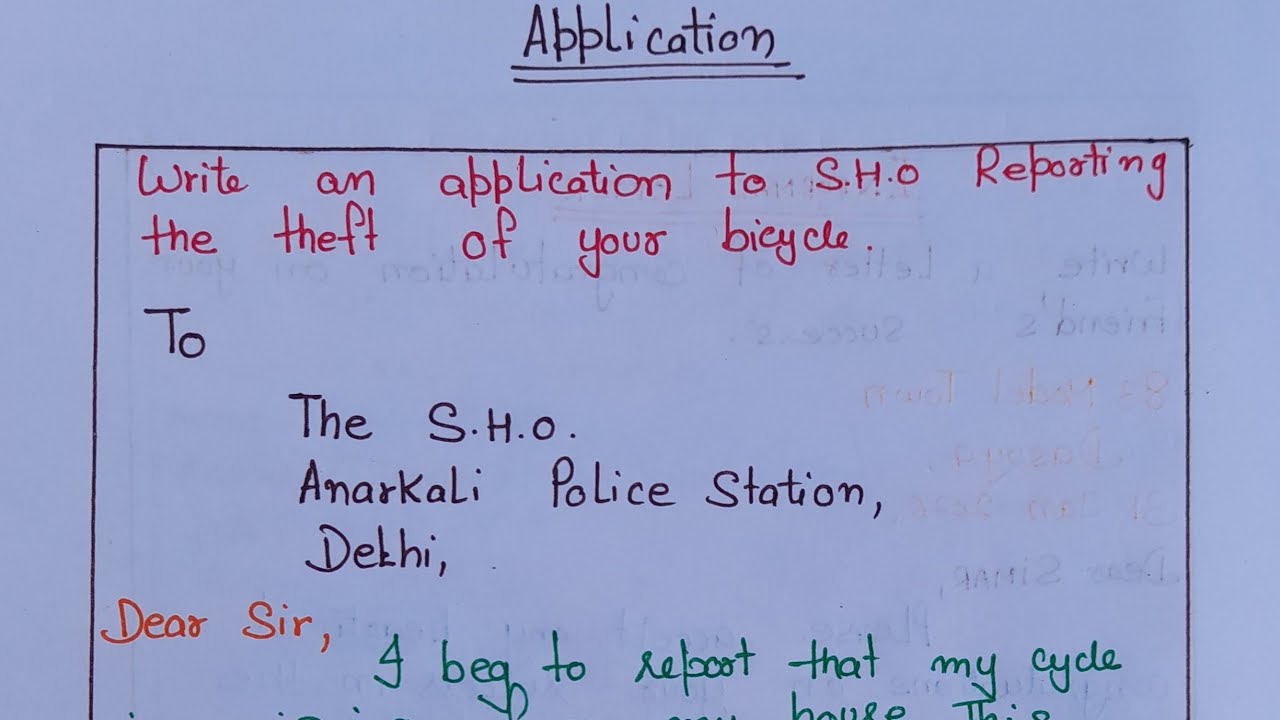 Application
Write an application to S.H.O Reporting
the theft of your bicycle.
To
The S.H.O.
Anarkali Police Station,
Delhi,
Dear Sir,
I beg to report that my cycle
my house This